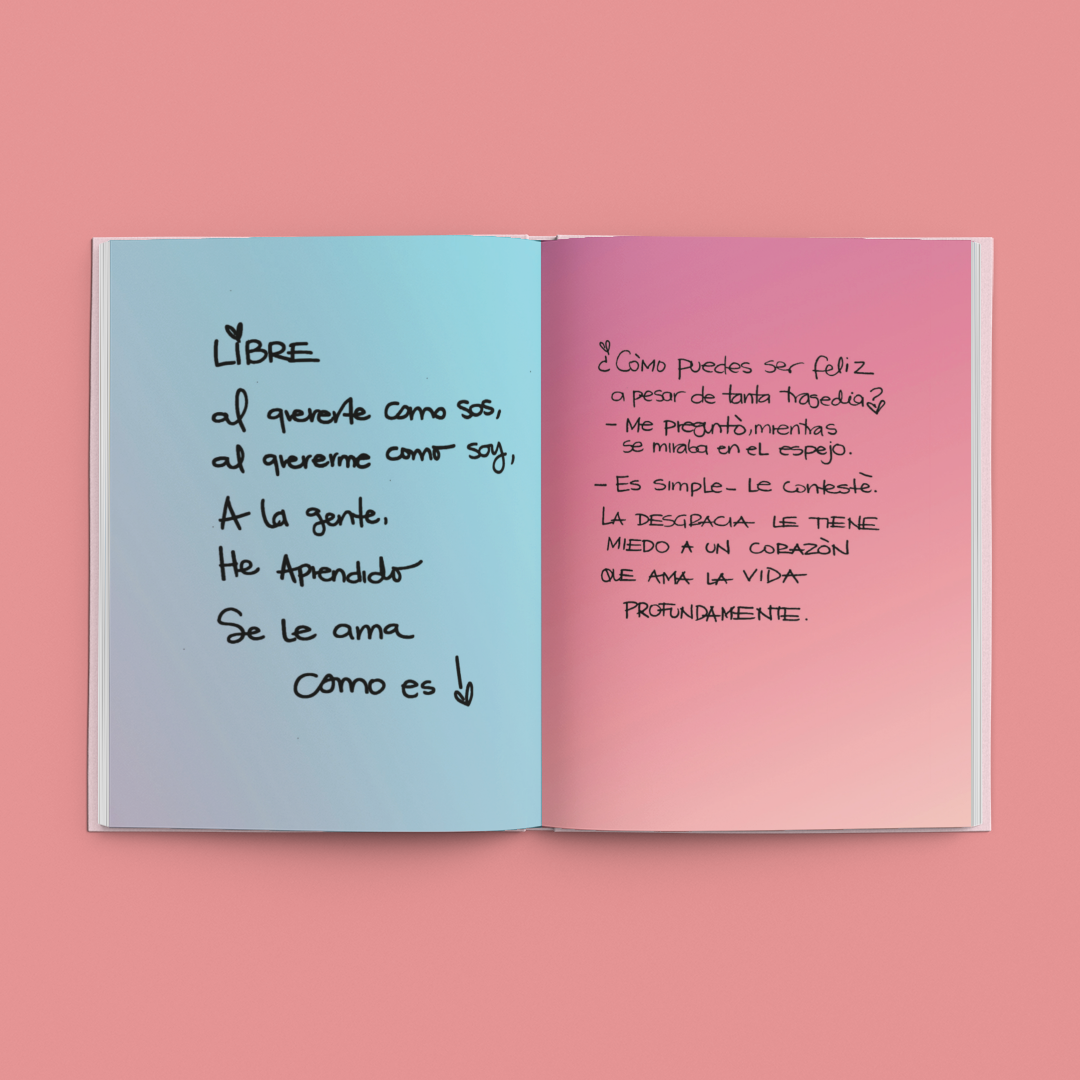 LIBRE
al quererte como sos,
al quererme como soy,
A la gente,
He Aprendido
Se le ama
como es
¿Còmo puedes ser feliz
a pesar de tanta tragedia?
- Me preguntò, mientras
se miraba en el espejo.
- Es simple - Le contestè.
LA DESGRACIA LE TIENE
MIEDO A UN CORAZÒN
QUE AMA LA VIDA
PROFUNDAMENTE.